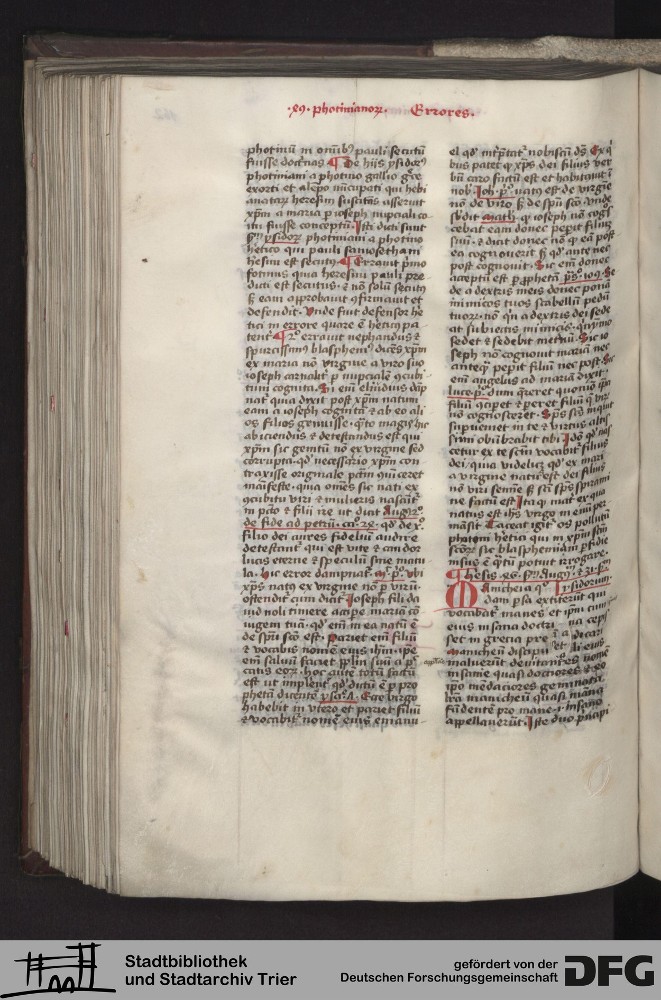 photinianor. Errores.
photinū in omībꝰ pauli secutū
fuisse doctrīas De hijs ysidorꝰ
photiniani a photino gallio
exorti et
anatarꝫ heresim suscitās asserūt
xpm a maria ꝑ ioseph nupciali co
itu fuisse conceptū. Isti dicti sunt
ysidorꝫ photiniani a photino
hetico qui pauli samosetham
hesim est secutꝰ Erravit pͥmo
fotinus quia heresim pauli pre
dicti est secutus ⁊ nō solū secutꝰ
ꝫ eam approbavit ⁊firmavit et
defendit. Vnde fuit defensor he
tici in errore quare ē heticū pa
erravit nephandus ⁊
spurcissimꝰ blasphemꝰ dicēs xpm
ex maria nō virgine a viro suo
ioseph carnali ꝑ nupcialē ꝯcubi
tum cognita. Si em
nat quia dixit post xpm natum
eam a ioseph cognitā ⁊ ab eo ali
os filios genuisse. qͣto magꝭ hic
abiciendus ⁊ detestandus est qui
xpm sic genitū nō ex virgine sed
corrupta. qd necessario xpm con
traxisse originale pctm
māifeste. quia omēs sic nati ex
ꝯcubitu viri ⁊ mulieris nascūt
in pctō ⁊ filii ire ut dicit Augꝰ
de fide ad petrū. qd de xͦ
filio dei aures fideliū audire
detestant qui est vite ⁊ candor
lucis eterne ⁊ speculū sine macu
la. Hic error dampnat ubi
xps natꝰ ex virgine nō ꝑ virū
ostendit cum dicit Ioseph fili da
uid noli timere accipe mariā cō
iugem tuā. qd em in ea natū ē
de spū scō est. pariet em filiū
⁊ vocabis nomē eius ihm. ipē
em salvū faciet pplm suū a pͨ
catis eorꝫ. hoc autē totū factū
est ut implent qd dictū ē ꝑ pro
phetā dicentē Ecce virgo
habebit in vtero et pariet filiū
⁊ vocabit nomē eius emanu
el qd nobiscū ds Ex qͥ
bus patet ꝙ xps dei filius ver
bū caro factū est et habitavit ī
nob. Ioh. natus est de virgīe
nō de viro ꝫ de spū scō vnde
math. ꝙ ioseph nō cogͦs
cebat eam donec peperit filiū
suū. ⁊ dicit donec nō ꝙ eā post
ea cognoverit ꝫ qd ante nec
post cognovit. Sic em donec
acceptū est ꝑ ꝓphetā Se
de a dextris meis donec ponā
inimicos tuos scabellū pedū
tuorꝫ. nō a dextris dei sede
at subiectis inimicis. qͥnymo
sedet ⁊ sedebit Sic io
seph nō cognovit mariā nec
anteqͣ pepit filiū nec post. Sic
em angelus ad mariā dixit.
luce dum qͥreret quomō ipsa
filiū ꝯcipet ⁊ peret filiū ꝙ virū
nō cognosceret. Sps scs inquit
supveniet in te ⁊ virtus altis
simi obūbrabit tibi Ideo qd nas
cetur ex te scm vocabit filius
dei. quia videlicꝫ qd ex mari
a virgine natū est dei filius
nō viri semīe ꝫ scī spūs spirami
ne factū est Itaqꝫ mat ex qua
natus est ihs virgo in
māsit Taceat igit os pollutū
photini hetici qui in xpm suū
scorꝫ sic blasphemiam ꝑfidie
sue ē qͣtū potuit irrogare.
Hesis Augꝰ ⁊
Manicheia qͥ Ysidorum
dam psa extiterūt qui
vocabat manes et ipm cum
eius insana doctri
set in grecia
manicheū discipu
maluerūt devitantes nomē
insanie quasi doctiores ⁊ eo
ipō mēdaciores geminata
lrā manicheū quasi mānā
fūdentē pro mane. i. insano
appellaverūt. Iste duo pncipi
Stadtbibliothek
und Stadtarchiv Trier
gefördert von der
Deutschen Forschungsgemeinschaft
DFG